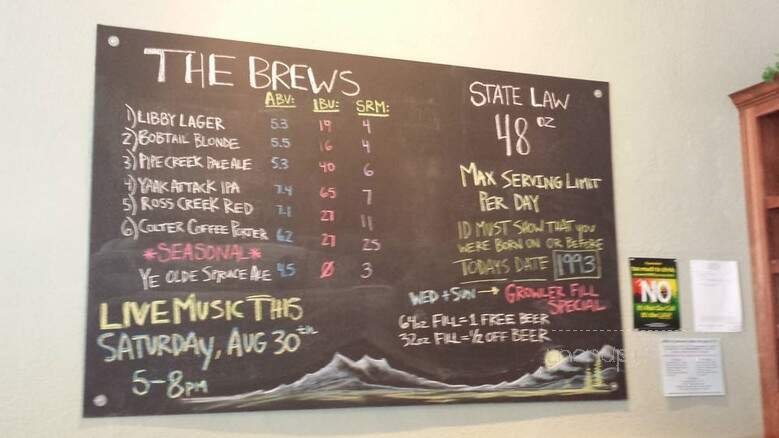 THE BREWS
ABV: IBU: SRM:
1) LIBBY LAGER 5.3 19 4
2) BOBTAIL BLONDE 5.5 16 4
3) PIPE CREEK PALE ALE 5.3 40 6
4) YAAK ATTACK IPA 7.4 65 7
5) ROSS CREEK RED 7.1 27 11
6) COLTER COFFEE PORTER 6.2 27 25
*SEASONAL*
YE OLDE SPRUCE ALE 4.5 Ø 3
LIVE MUSIC THIS
SATURDAY, AUG 30th
5-8PM
STATE LAW
48 OZ
MAX SERVING LIMIT
PER DAY
ID MUST SHOW THAT YOU
WERE BORN ON OR BEFORE
TODAYS DATE 1993
WED + SUN → GROWLER FILL
SPECIAL
64oz FILL = 1 FREE BEER
32oz FILL = ½ OFF BEER
NO